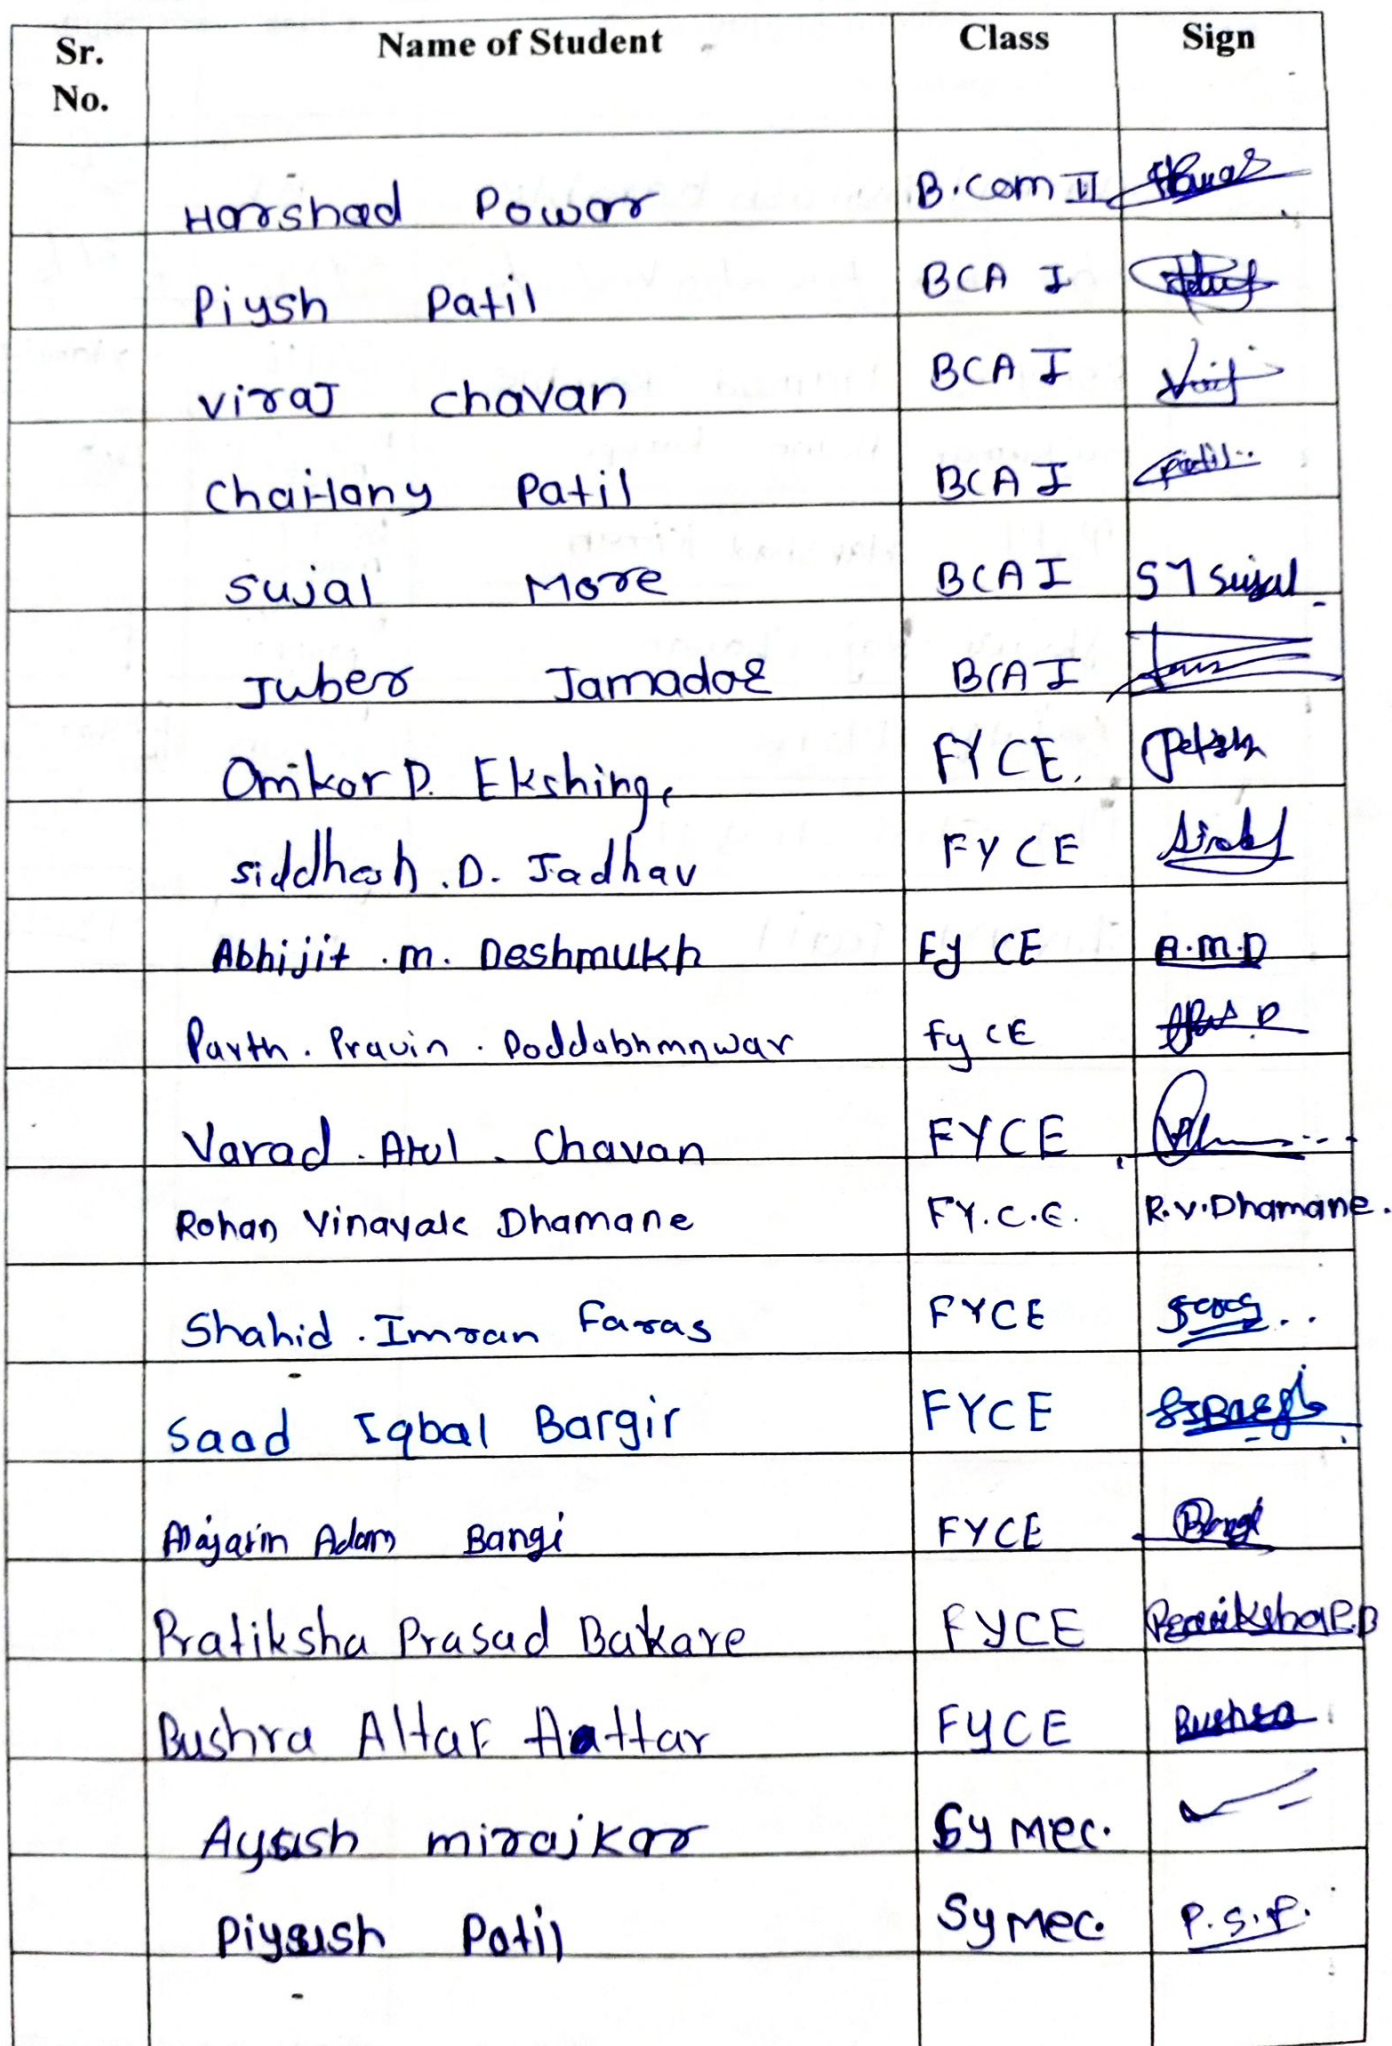 Sr. No. Name of Student Class Sign
Harshad Powar B.Com II
Piysh Patil BCA I
viraj chavan BCA I Viraj
Chaitany Patil BCA I Patil
Sujal More BCA I SM Sujal
Juber Jamadar BCA I
Omkar D. Ekshinge FYCE.
Siddhesh .D. Jadhav FYCE
Abhijit .m. Deshmukh Fy CE A.M.D
Parth . Pravin . Doddabhmnwar fy CE
Varad . Atul . Chavan FYCE
Rohan Vinayak Dhamane FY.C.E. R.V.Dhamane.
Shahid . Imran Faras FYCE
Saad Iqbal Bargir FYCE
Adam Bangi FYCE Bangi
Pratiksha Prasad Bakare FYCE
Bushra Altaf Attar FYCE Bushra
Ayush mirajkar Sy Mec.
Piyush Patil Sy Mec. P.S.P.